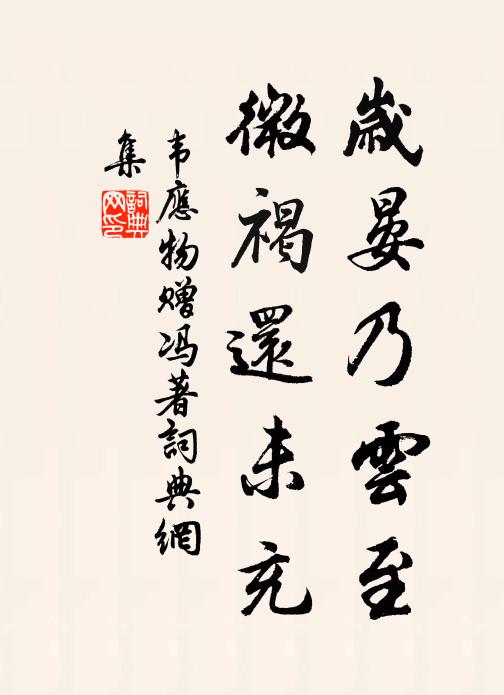 歲晏乃雲至
微褐還未充
韦應物贈冯著詞典網
集
詞典
网印